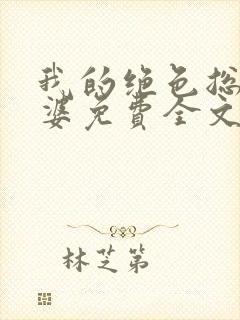 我的绝色总
婆免費全文
林芝第